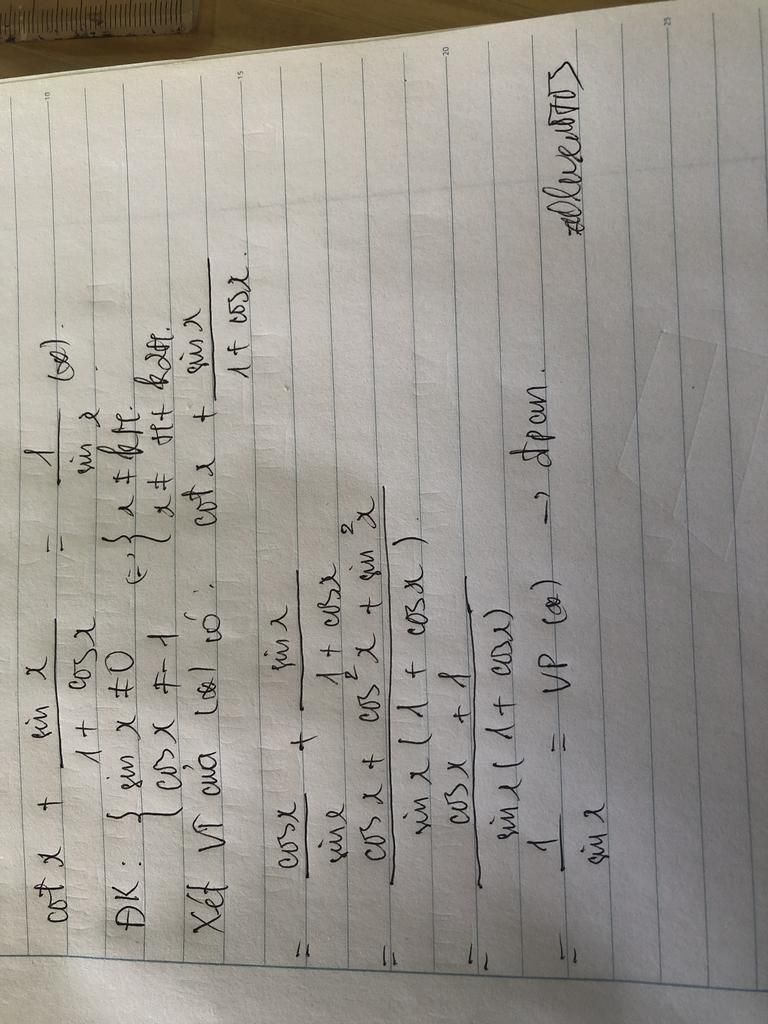 cot x + sin x / 1 + cos x = 1 / sin x (∞).
ĐK: { sin x ≠ 0 (=) { x ≠ kπ.
{ cos x ≠ -1 { x ≠ π + k2π.
Xét VT của (∞) có: cot x + sin x / 1 + cos x.
= cos x / sin x + sin x / 1 + cos x
= cos x + cos²x + sin²x / sin x (1 + cos x)
= cos x + 1 / sin x (1 + cos x)
= 1 / sin x = VP (∞) → đpcm.
10
15
20
25